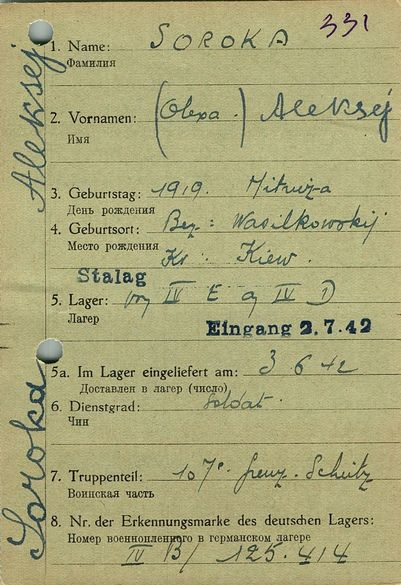 331
Aleksej
Soroka
1. Name: SOROKA
Фамилия
2. Vornamen: (Olexa.) Aleksej
Имя
3. Geburtstag: 1919.
День рождения
4. Geburtsort: Bez: Wasilkowskij
Место рождения
Kr: Kiew.
Stalag
5. Lager: IV E IV D
Лагер
Eingang 2.7.42
5a. Im Lager eingeliefert am: 3 6 42
Доставлен в лагер (число)
6. Dienstgrad: Soldat.
Чин
7. Truppenteil: 107. Schütz
Воинская часть
8. Nr. der Erkennungsmarke des deutschen Lagers:
Номер военнопленного в германском лагере
IV B/ 125.414